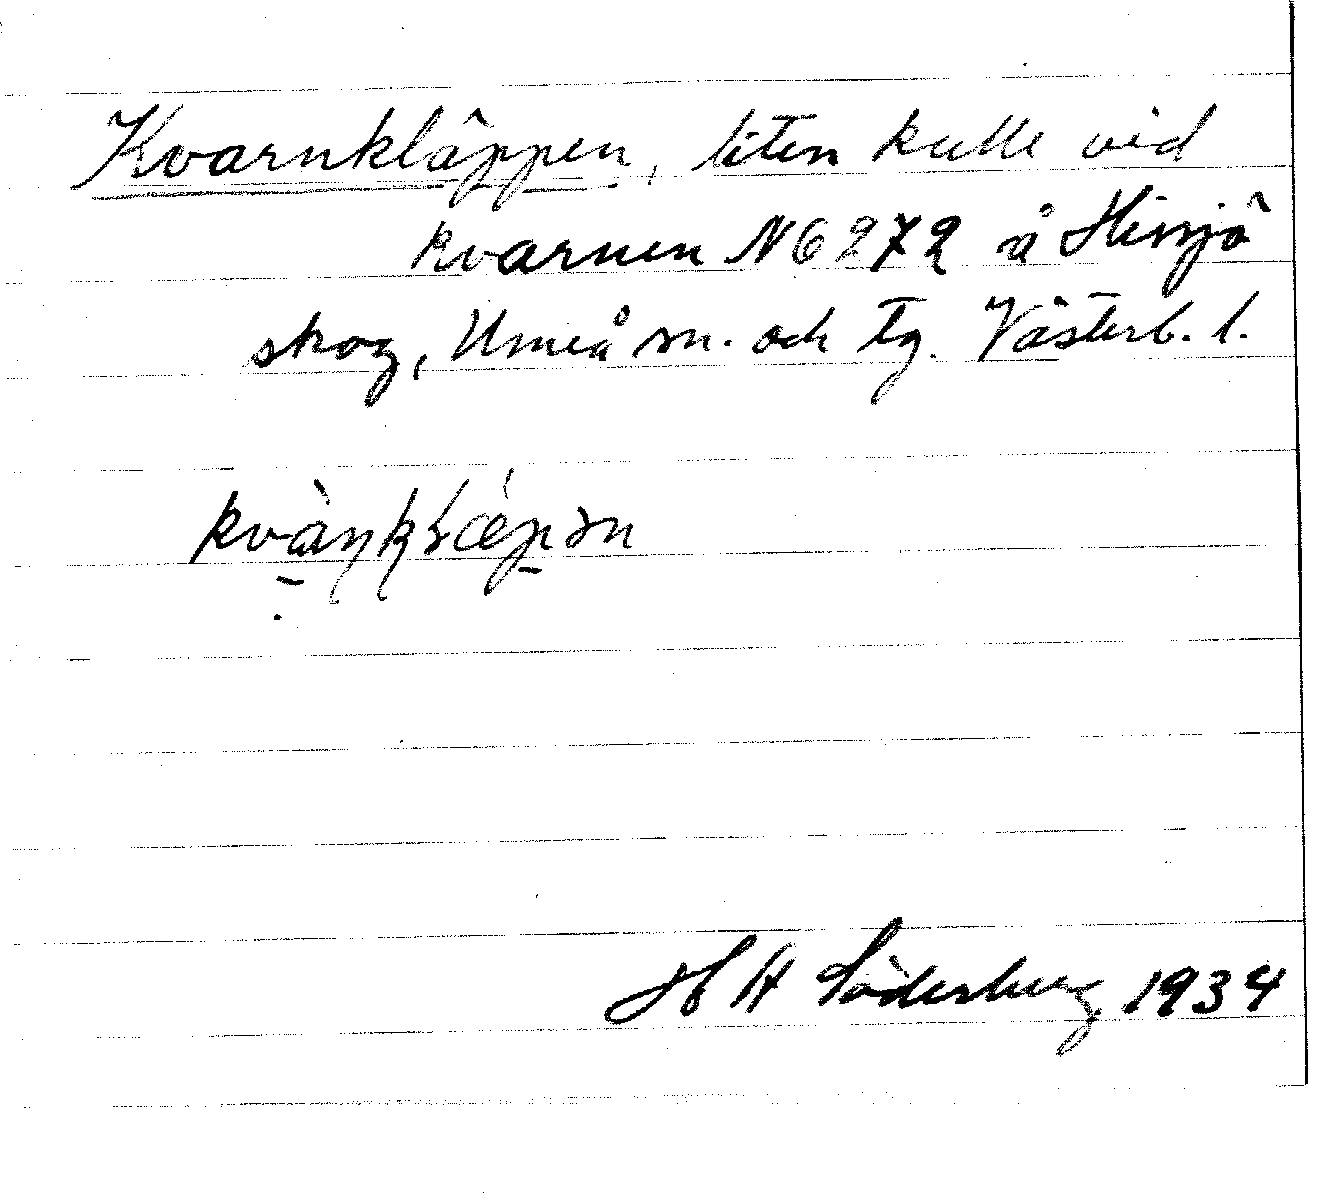 Kvarnkläppen, liten kulle vid
kvarnen N 6272 å Hissjö
skog, Umeå sn. och tg. Västerb. l.
H A Söderberg 1934